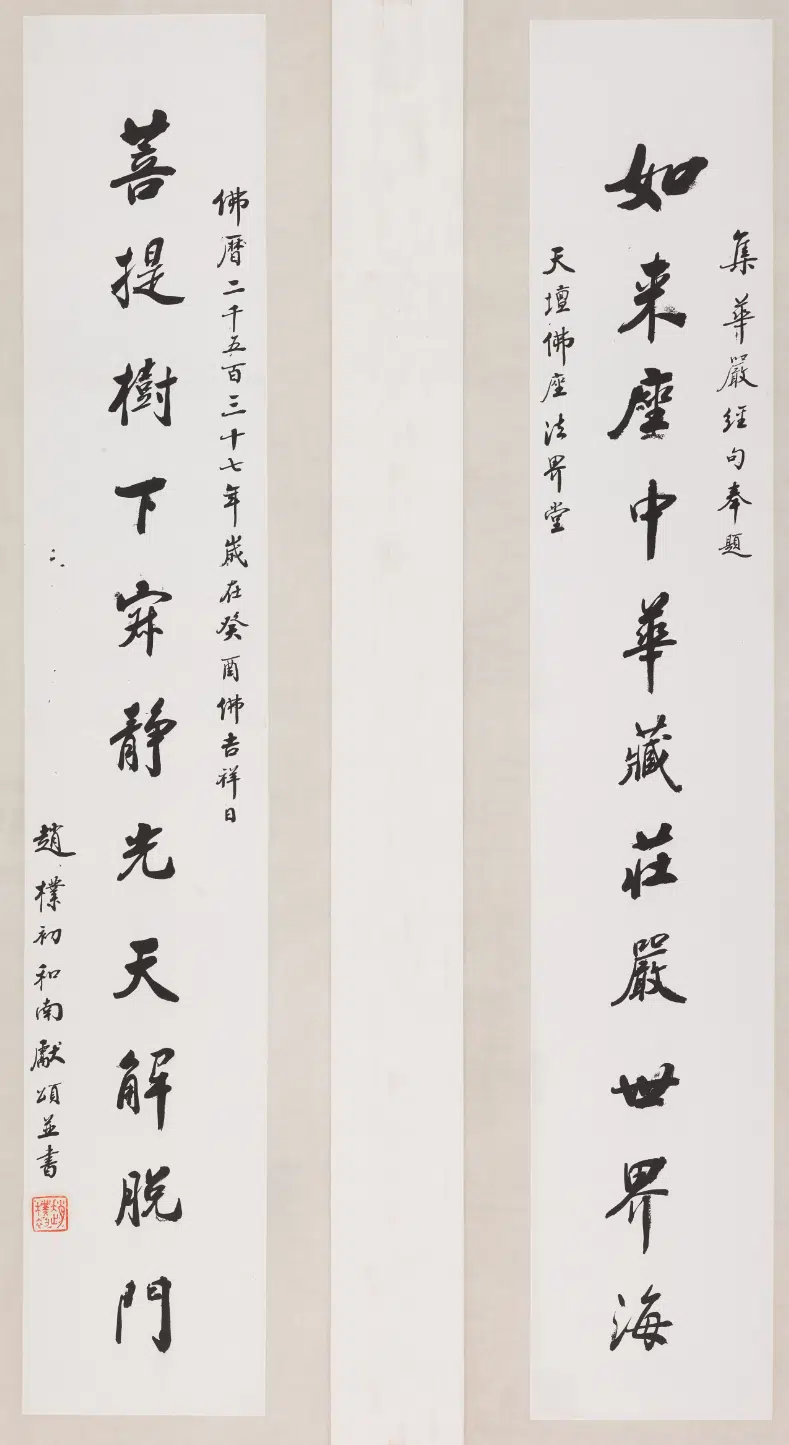 集華嚴經句奉題
如来座中華藏莊嚴世界海
天壇佛座法界堂
佛曆二千五百三十七年歲在癸酉佛吉祥日
菩提樹下寂靜光天解脫門
趙樸初和南獻頌並書
趙樸初